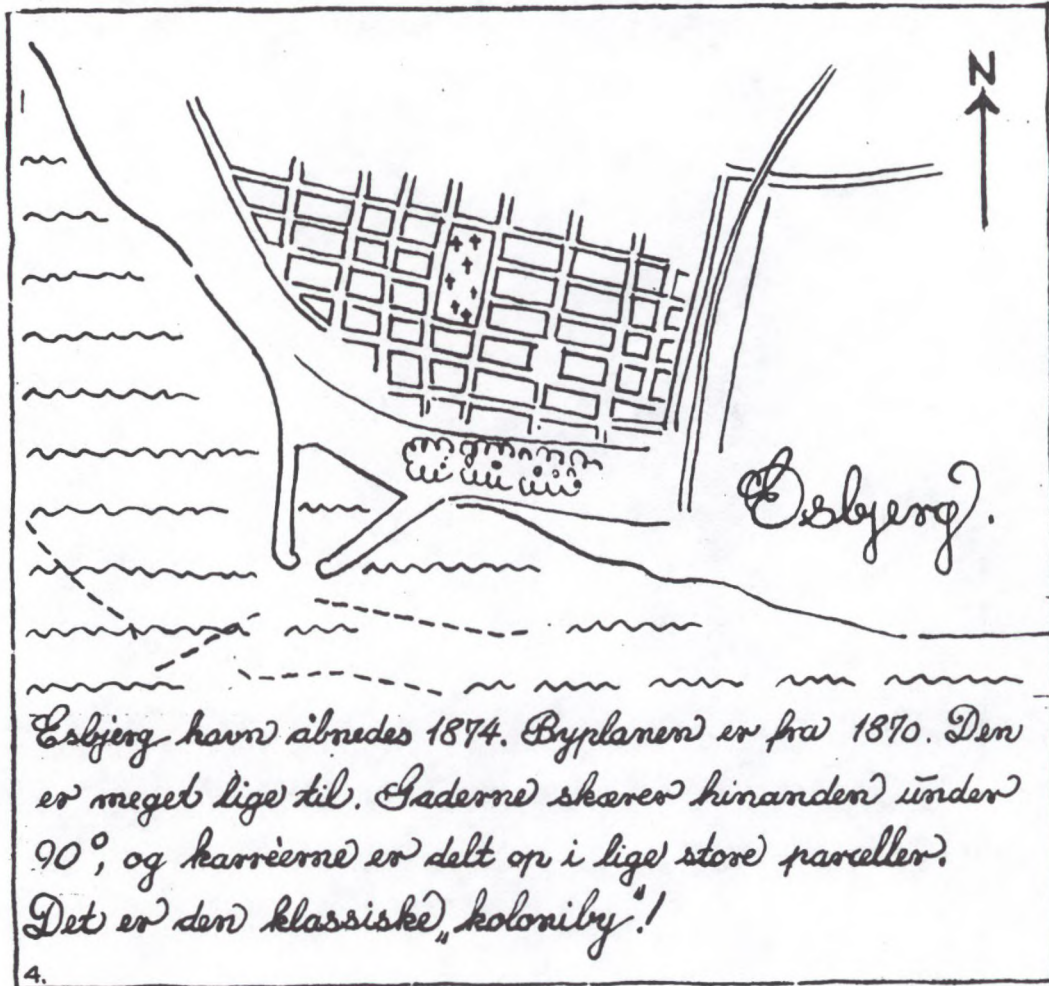 N
Esbjerg.
Esbjerg havn åbnedes 1874. Byplanen er fra 1870. Den
er meget lige til. Gaderne skærer hinanden under
90°, og karréerne er delt op i lige store parceller.
Det er den klassiske „koloniby"!
4.